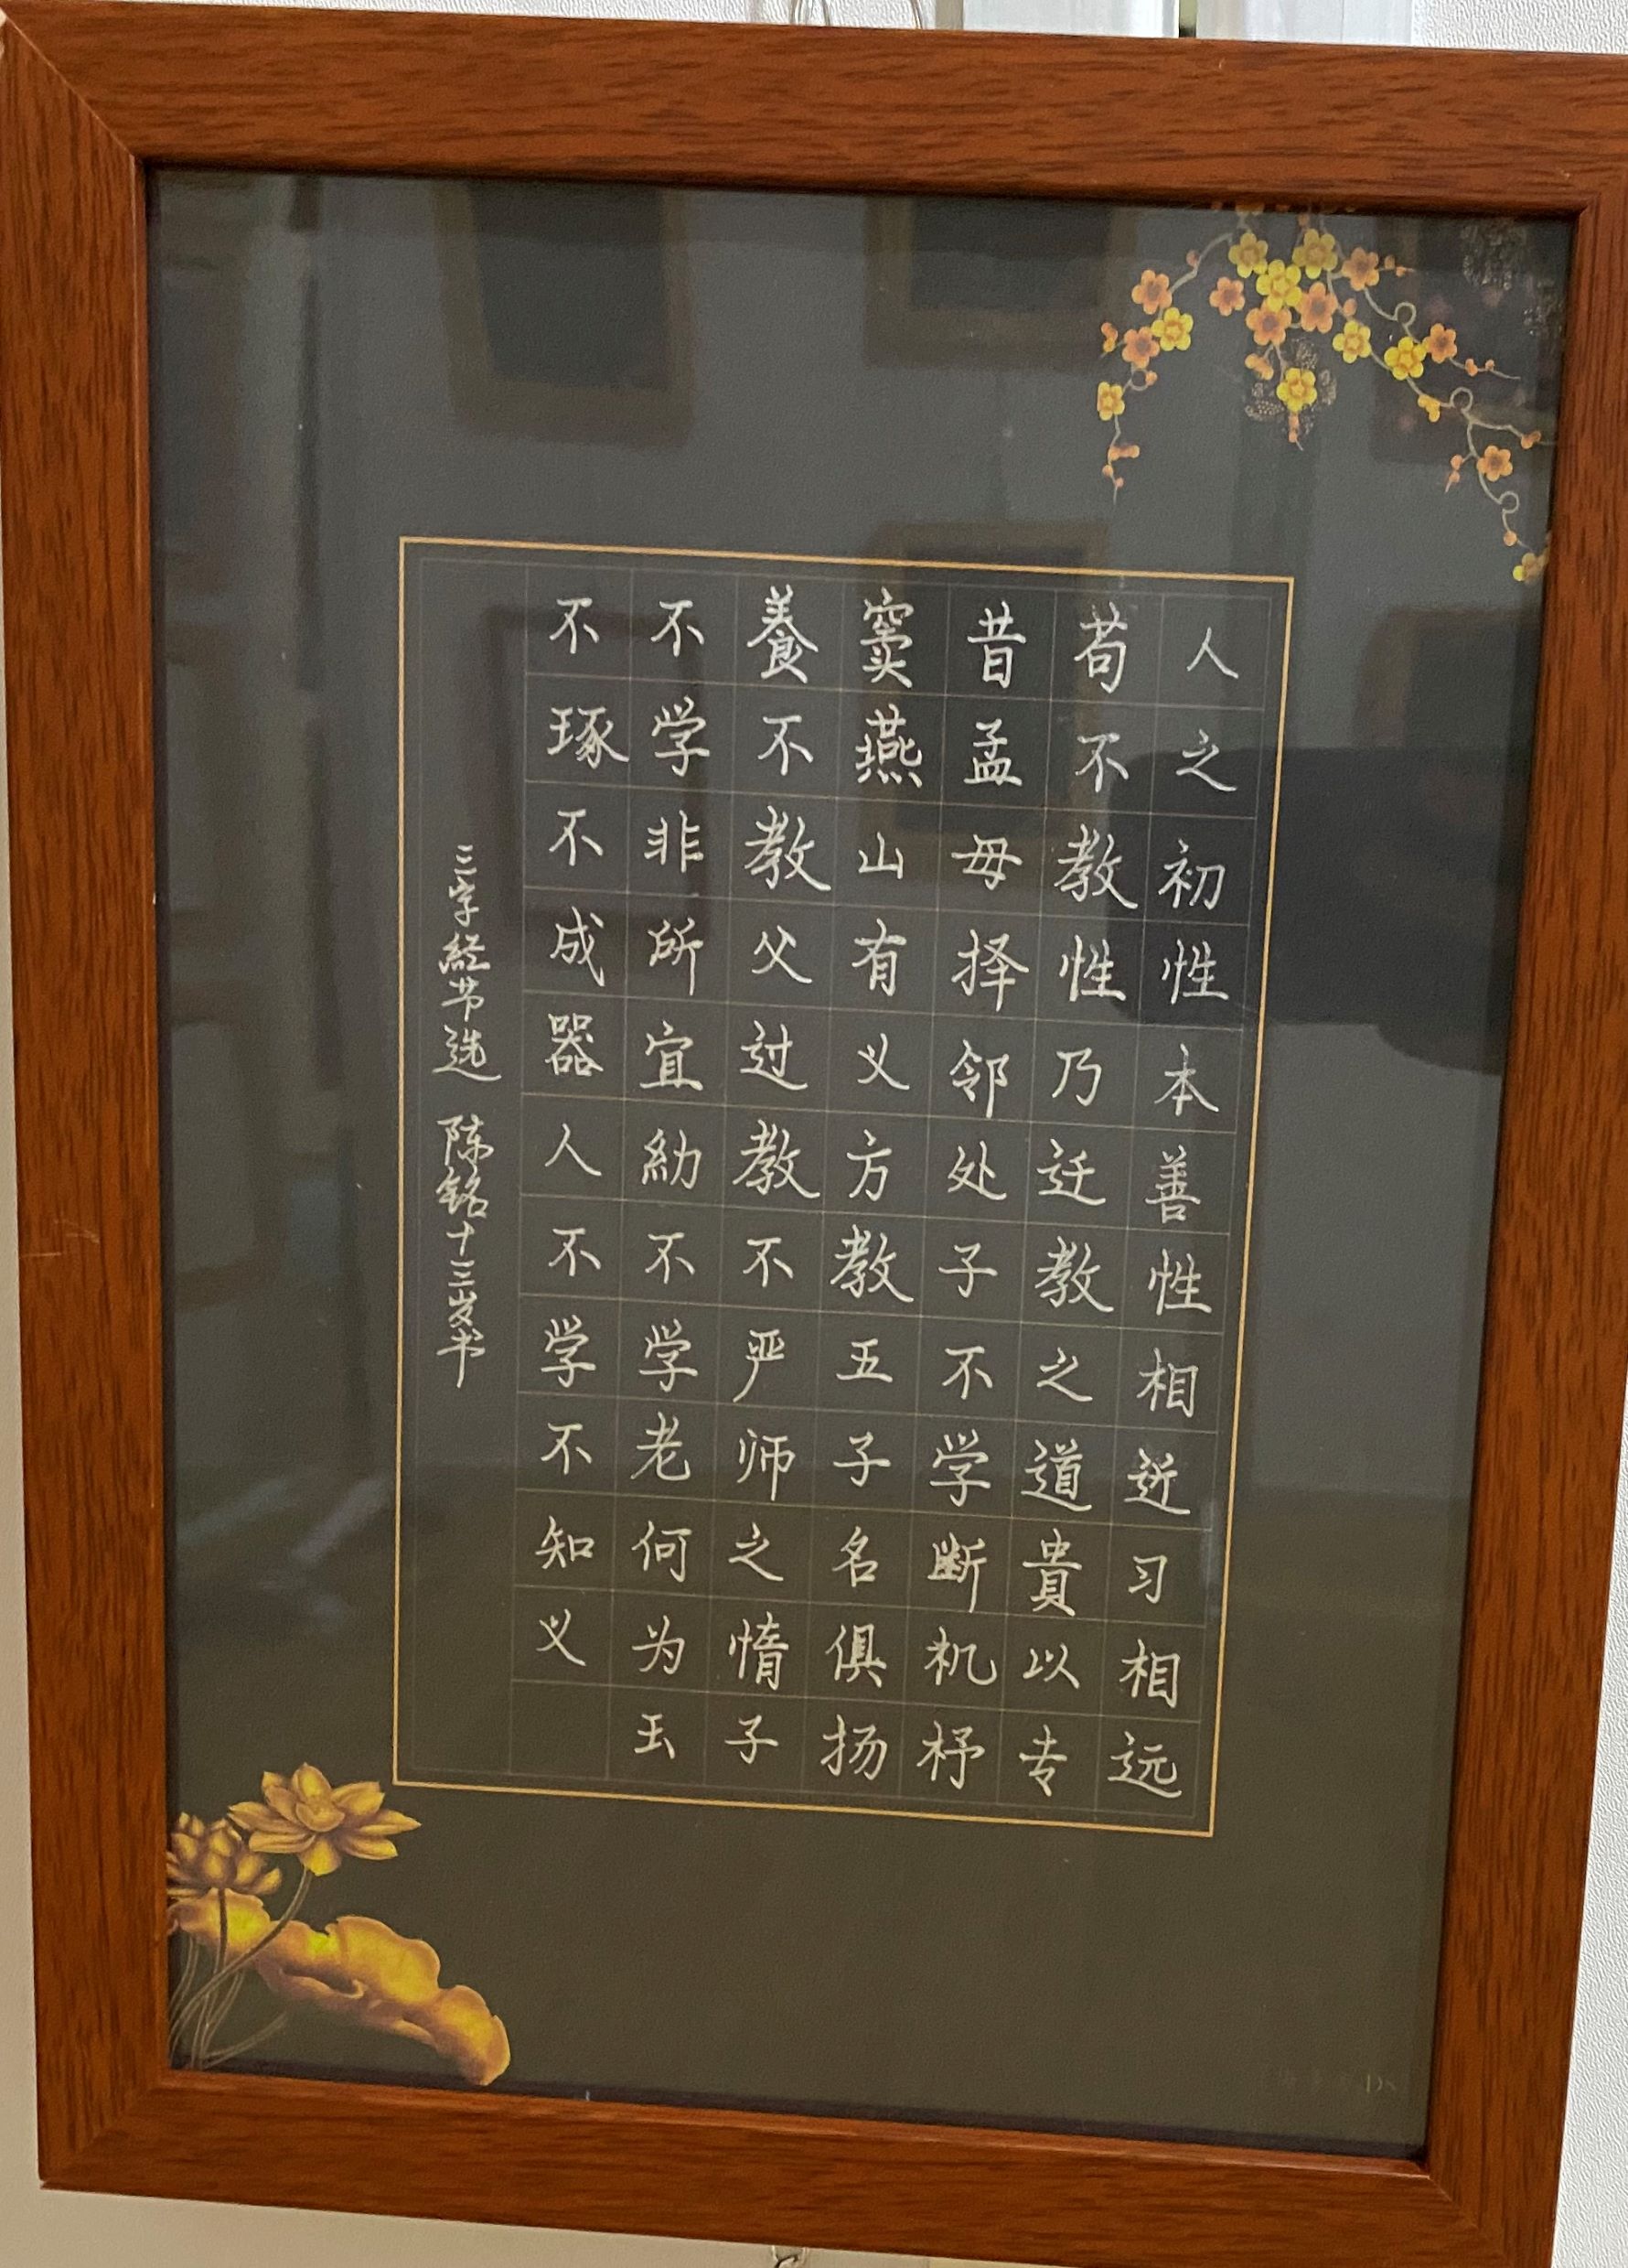 人之初性本善性相近习相远
苟不教性乃迁教之道貴以专
昔孟母择邻处子不学断机杼
窦燕山有义方教五子名俱扬
養不教父过教不严师之惰子
不学非所宜幼不学老何为玉
不琢不成器人不学不知义
三字经节选 陈铭十三岁书